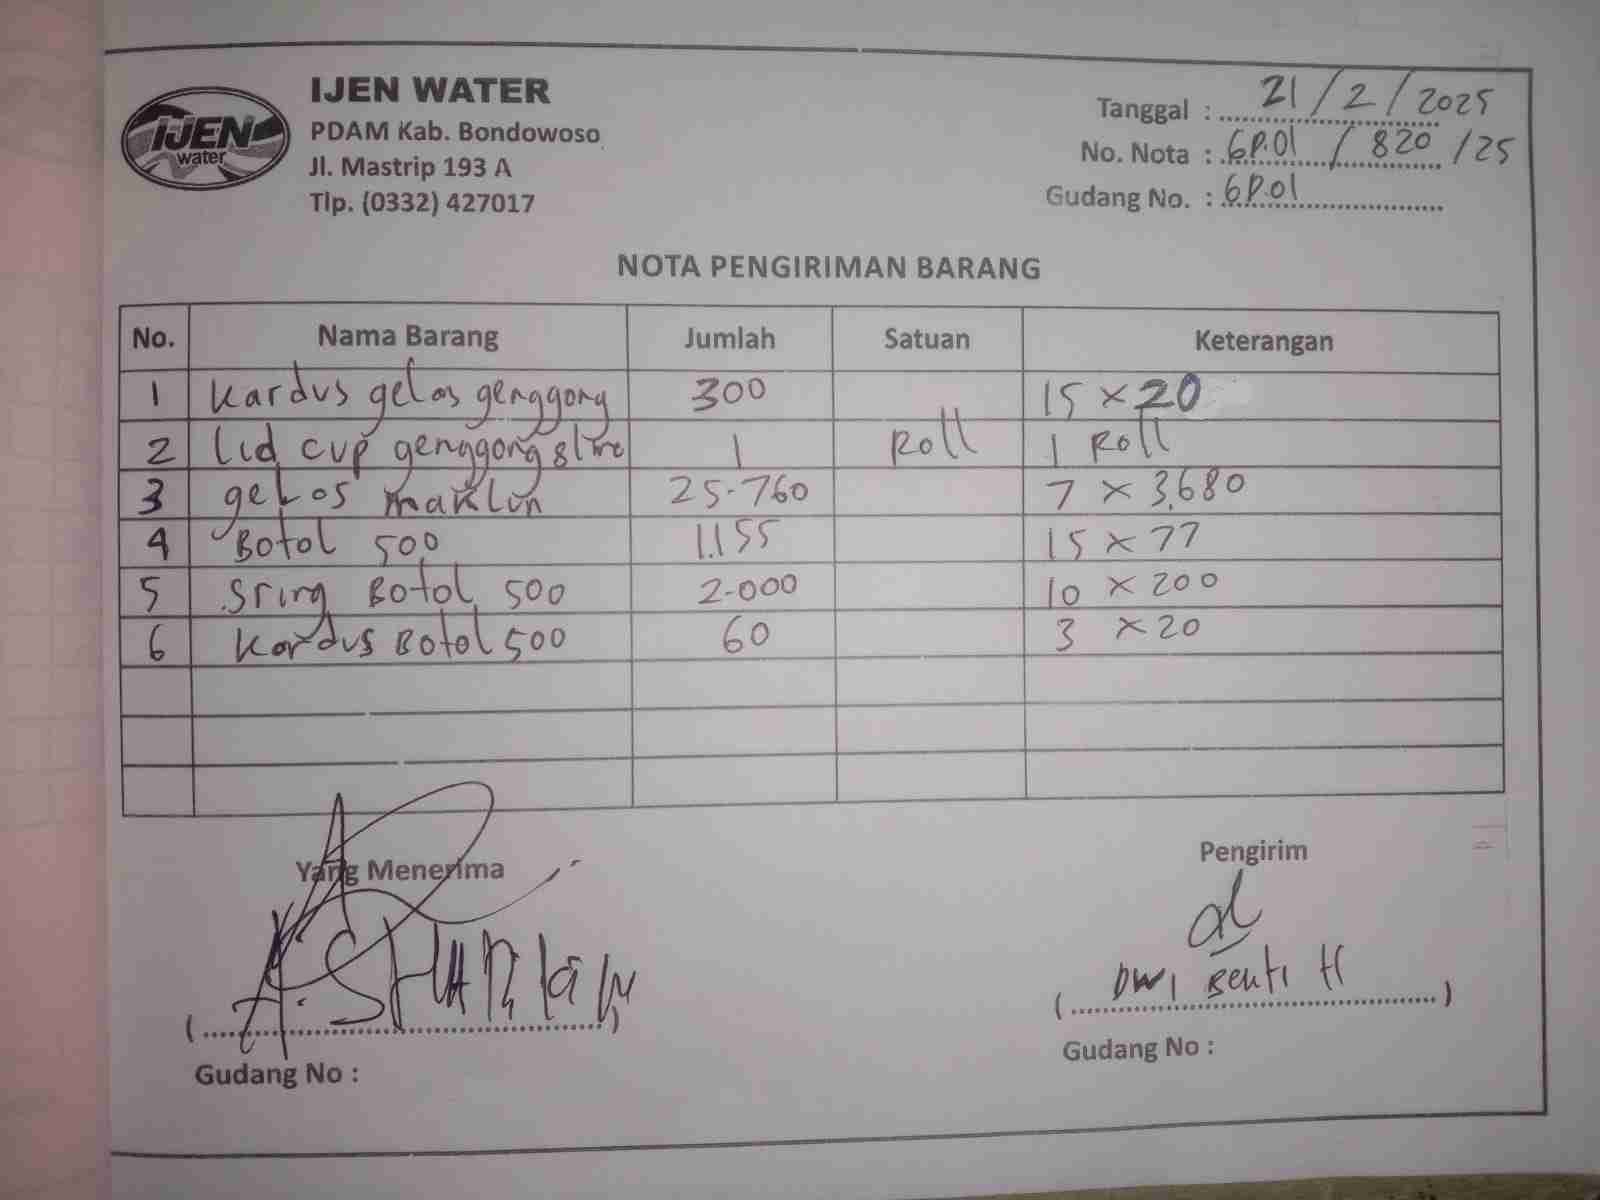 IJEN water
IJEN WATER
PDAM Kab. Bondowoso
Jl. Mastrip 193 A
Tlp. (0332) 427017
Tanggal : 21 / 2 / 2025
No. Nota : 6P.01 / 820 /25
Gudang No. : 6P.01
NOTA PENGIRIMAN BARANG
No. Nama Barang Jumlah Satuan Keterangan
1 Kardus gelas genggong 300 15 x 20
2 Lid cup genggong 1 Roll 1 Roll
3 gelas maklun 25.760 7 x 3.680
4 Botol 500 1.155 15 x 77
5 Sring Botol 500 2.000 10 x 200
6 Kardus Botol 500 60 3 x 20
Yang Menerima
Pengirim
Dwi H
Gudang No :
Gudang No :